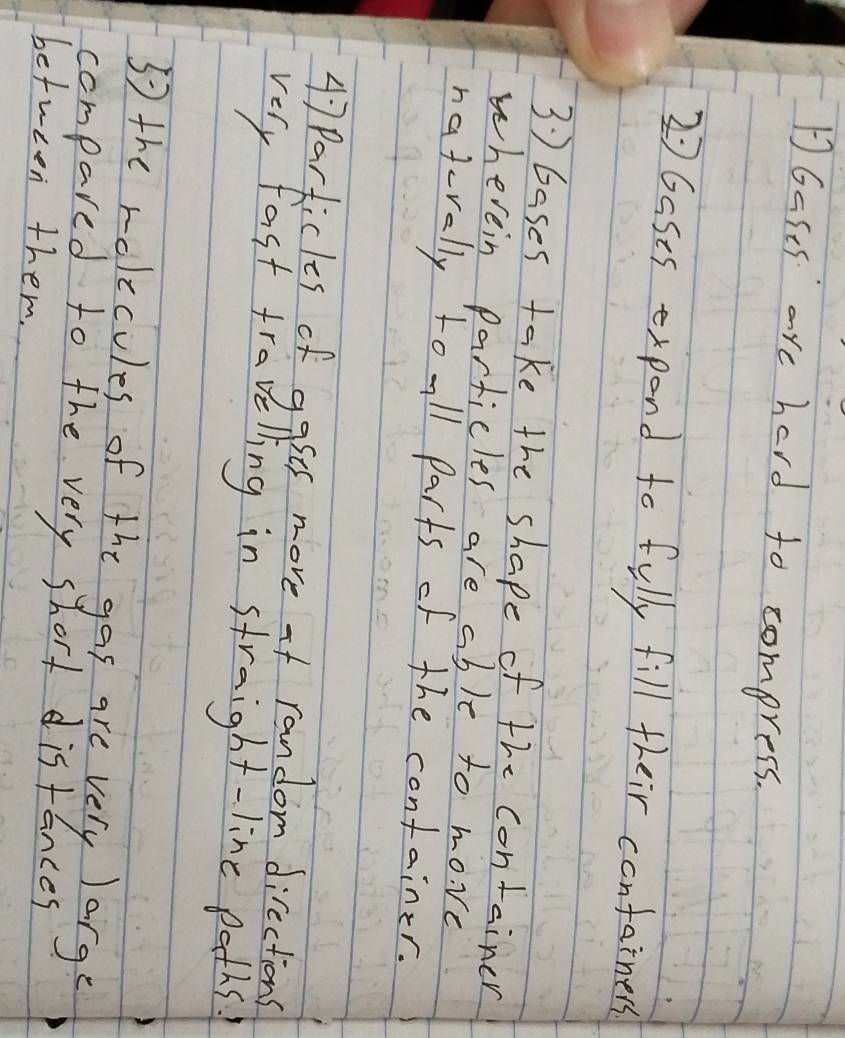 1.) Gases are hard to compress.
2.) Gases expand to fully fill their containers.
3.) Gases take the shape of the container
wherein particles are able to move
naturally to all parts of the container.
4.) Particles of gases move at random directions
very fast travelling in straight-line paths.
5.) the molecules of the gas are very large
compared to the very short distances
between them.